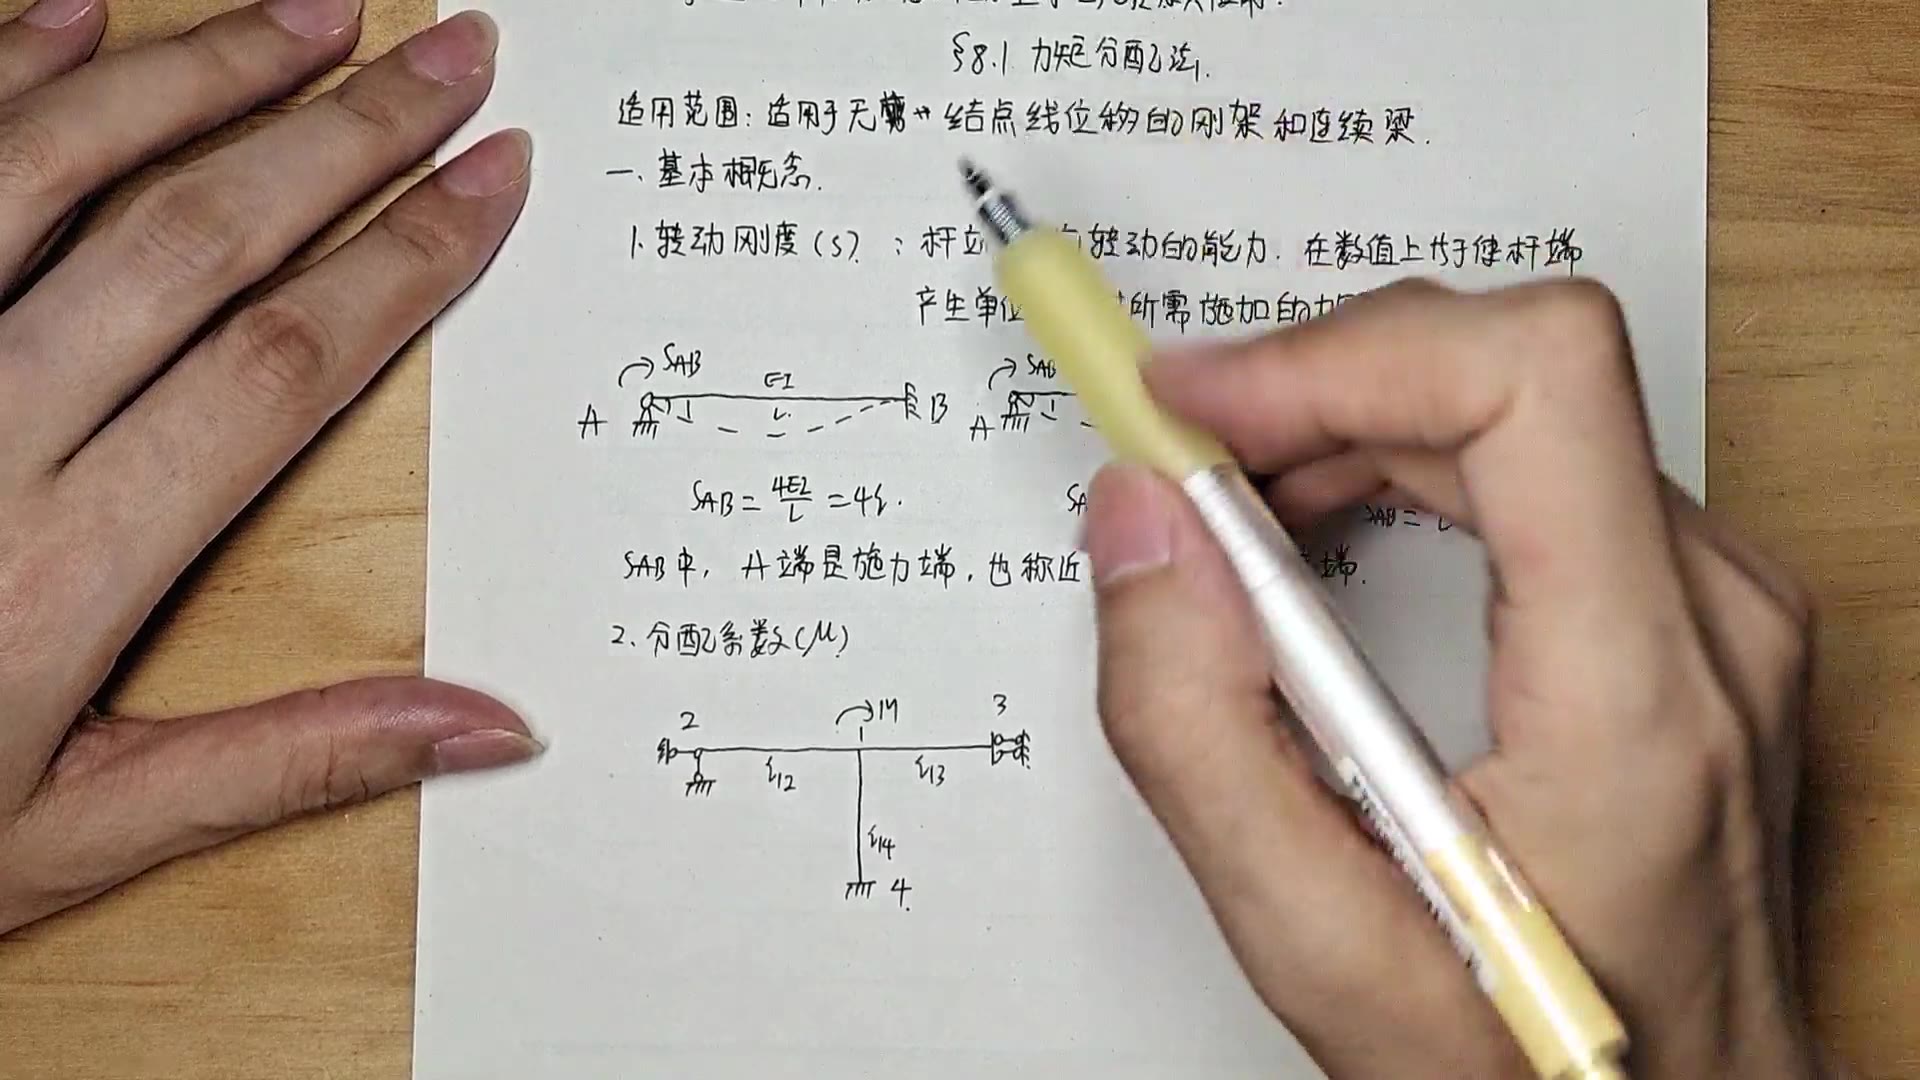 §8.1 力矩分配法.
适用范围: 适用于无 结点线位移的刚架和连续梁.
一、基本概念.
1. 转动刚度(S): 杆 转动的能力. 在数值上 使杆端
产生单位 所需施加的力
SAB EI SAB
A L B A
SAB = 4EI/L = 4i. SAB =
SAB中, A端是施力端, 也称近 端.
2. 分配系数(μ)
2 M 3
i12 i13
i14
4.